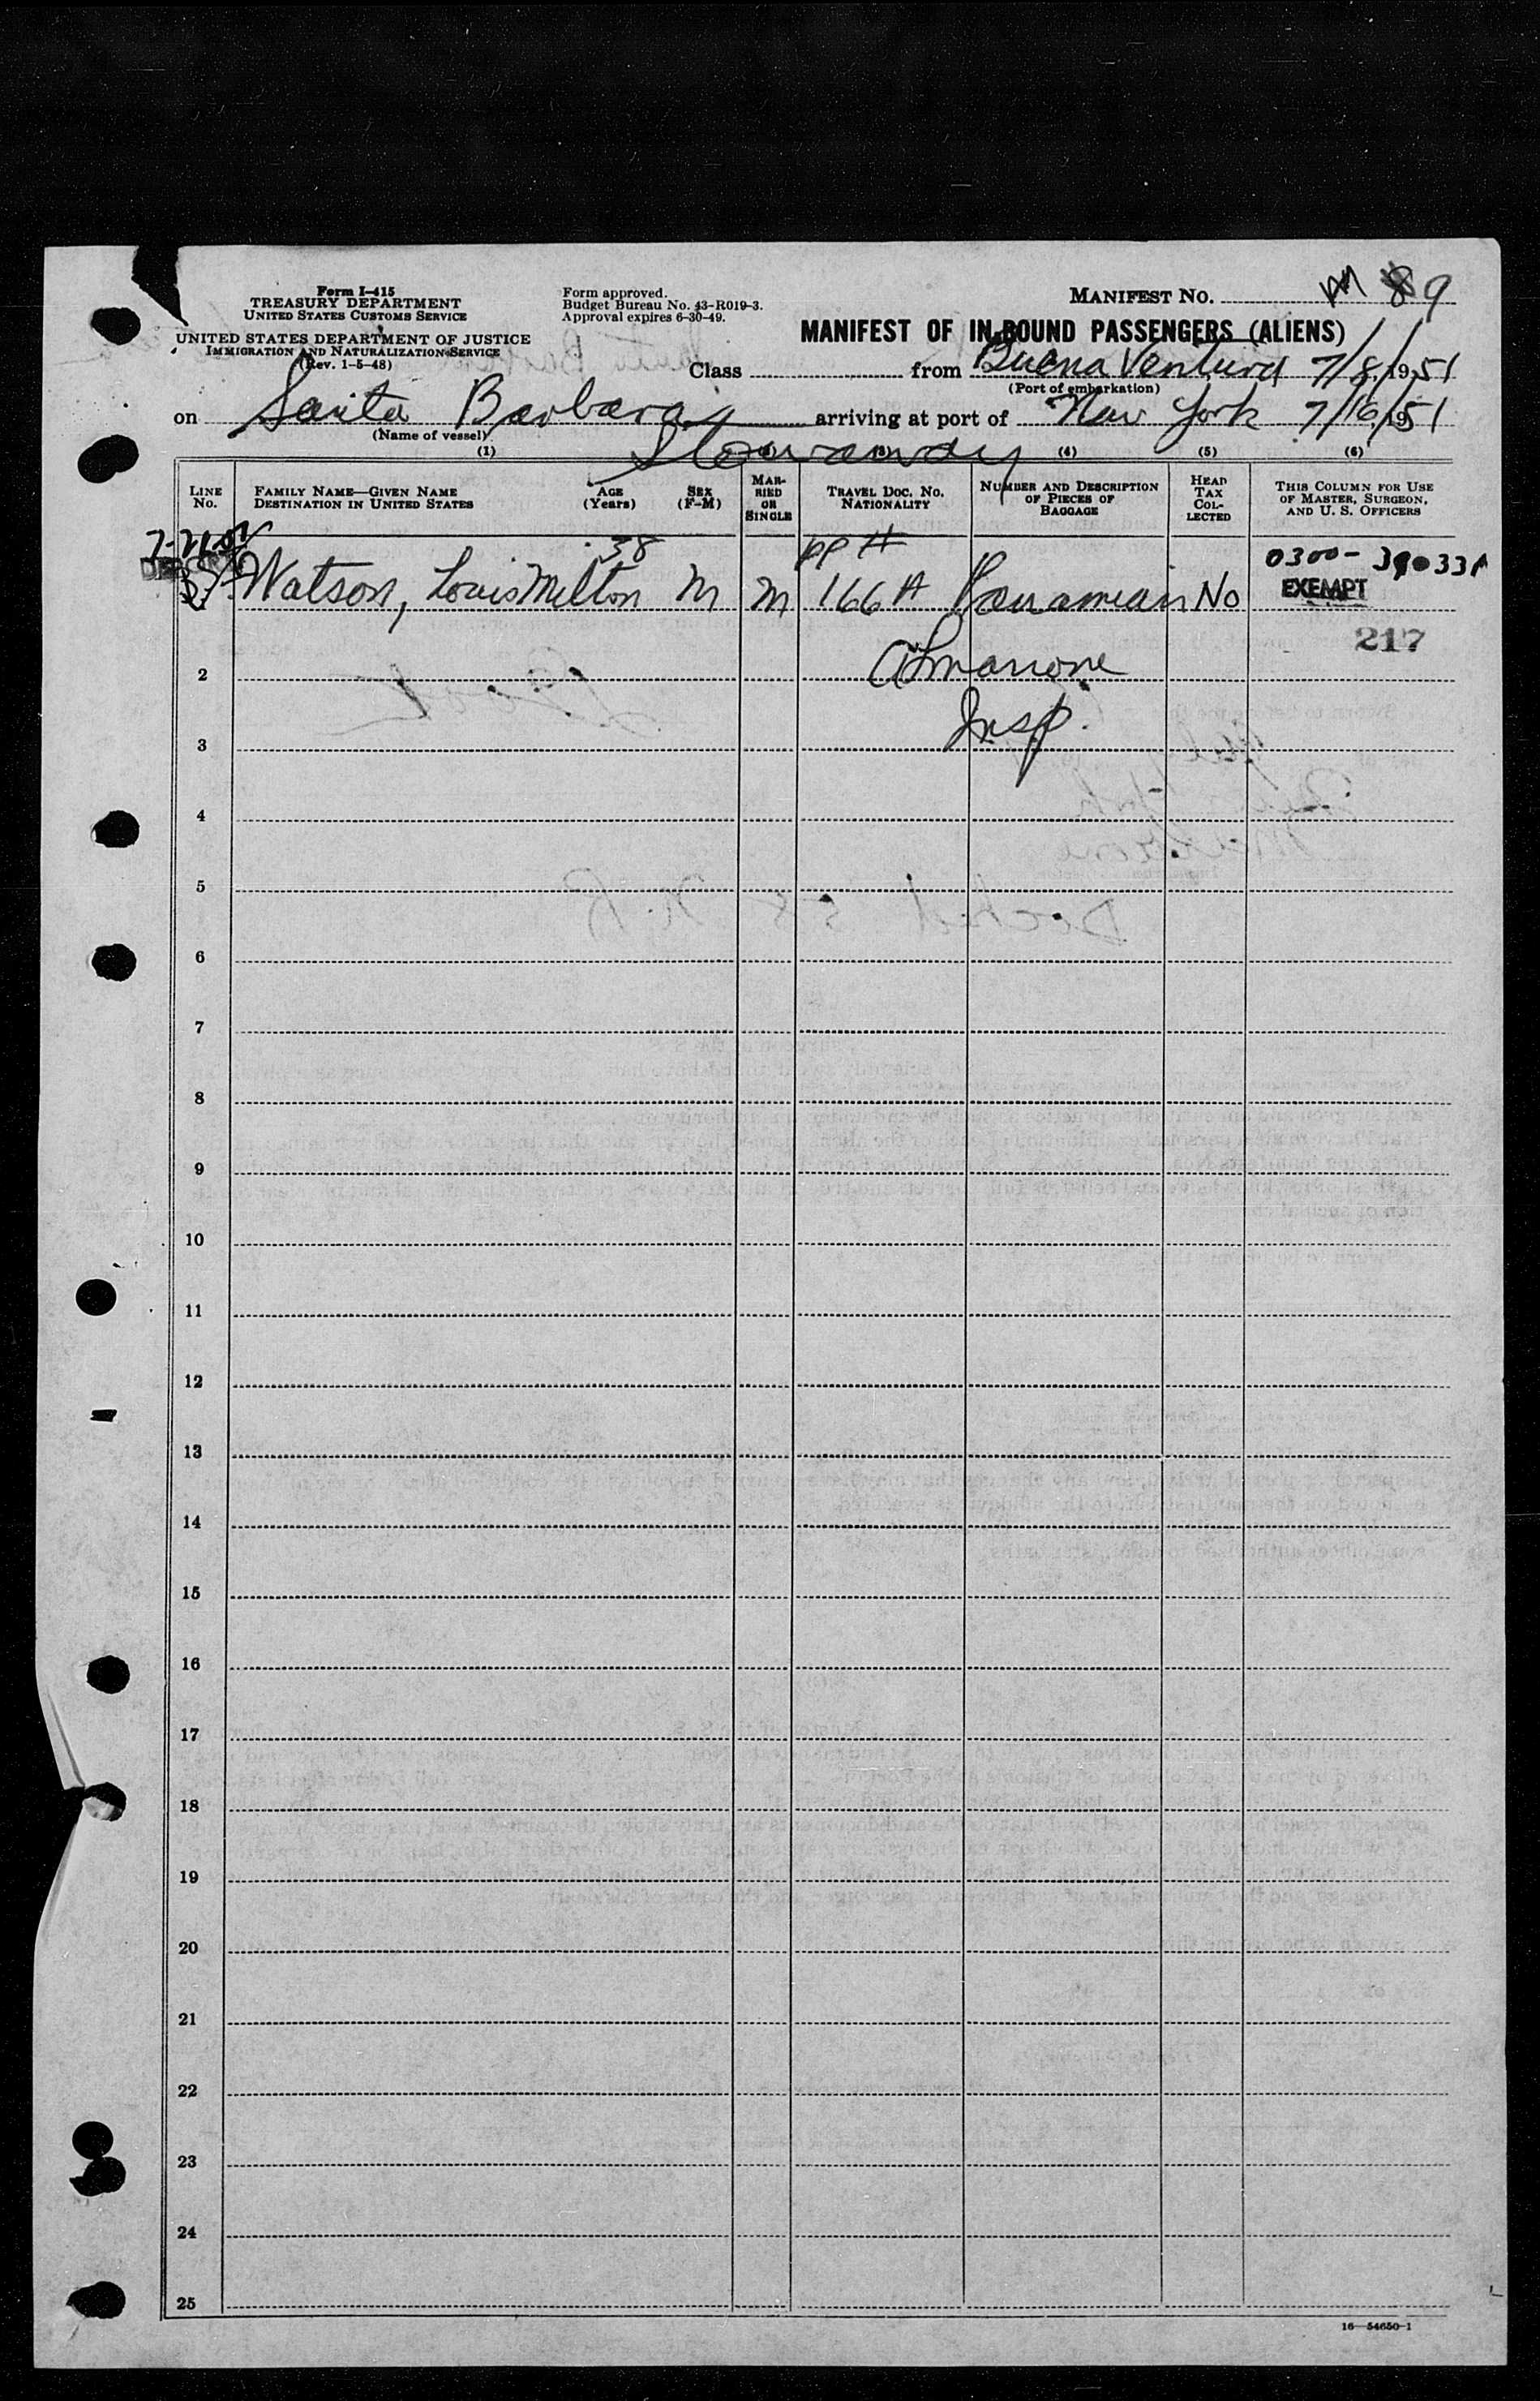 Form I-415
TREASURY DEPARTMENT
UNITED STATES CUSTOMS SERVICE
UNITED STATES DEPARTMENT OF JUSTICE
IMMIGRATION AND NATURALIZATION SERVICE
(Rev. 1-5-48)
Form approved.
Budget Bureau No. 43-R019-3.
Approval expires 6-30-49.
MANIFEST NO. 89
MANIFEST OF IN-BOUND PASSENGERS (ALIENS)
Class from Buena Ventura 7/8/1951
(Port of embarkation)
on Santa Barbara arriving at port of New York 7/16/1951
(Name of vessel)
Stowaway
(1) (3) (4) (5) (6)
LINE No. FAMILY NAME—GIVEN NAME DESTINATION IN UNITED STATES AGE (Years) SEX (F-M) MARRIED OR SINGLE TRAVEL DOC. NO. NATIONALITY NUMBER AND DESCRIPTION OF PIECES OF BAGGAGE HEAD TAX COLLECTED THIS COLUMN FOR USE OF MASTER, SURGEON, AND U. S. OFFICERS
38 PP # 0300-
Watson, Louis Milton M M 166 # Panamian No EXEMPT
217
2
Insp.
3
4
5
6
7
8
9
10
11
12
13
14
15
16
17
18
19
20
21
22
23
24
25
16—54650-1